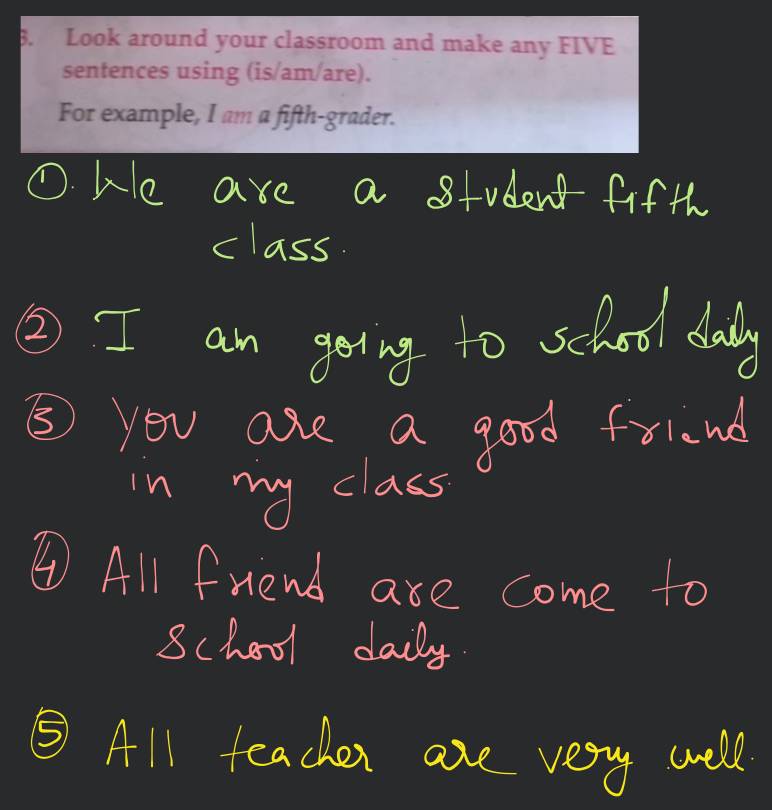 3. Look around your classroom and make any FIVE
sentences using (is/am/are).
For example, I am a fifth-grader.
①. We are a student fifth
class.
② I am going to school daily
③ You are a good friend
in my class.
④ All friend are come to
school daily.
⑤ All teacher are very well.